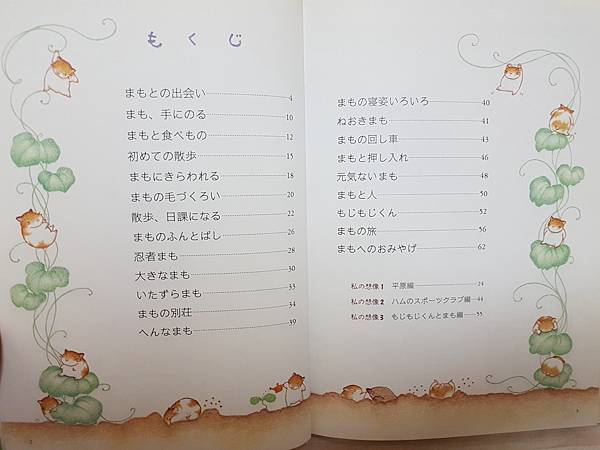 もくじ
まもとの出会い 4
まも、手にのる 10
まもと食べもの 12
初めての散歩 15
まもにきらわれる 18
まもの毛づくろい 20
散歩、日課になる 22
まものふんとばし 26
忍者まも 28
大きなまも 30
いたずらまも 33
まもの別荘 34
へんなまも 39
まもの寝姿いろいろ 40
ねおきまも 41
まもの回し車 43
まもと押し入れ 46
元気ないまも 48
まもと人 50
もじもじくん 52
まもの旅 56
まもへのおみやげ 62
私の想像1 平原編 24
私の想像2 ハムのスポーツクラブ編 44
私の想像3 もじもじくんとまも編 55
2
3